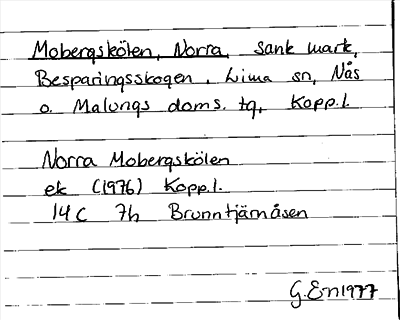 Mobergskölen, Norra, sank mark,
Besparingsskogen, Lima sn, Nås
o. Malungs doms. tg, Kopp.l.
Norra Mobergskölen
ek (1976) Kopp.l.
14C 7h Brunntjärnåsen
G.En 1977